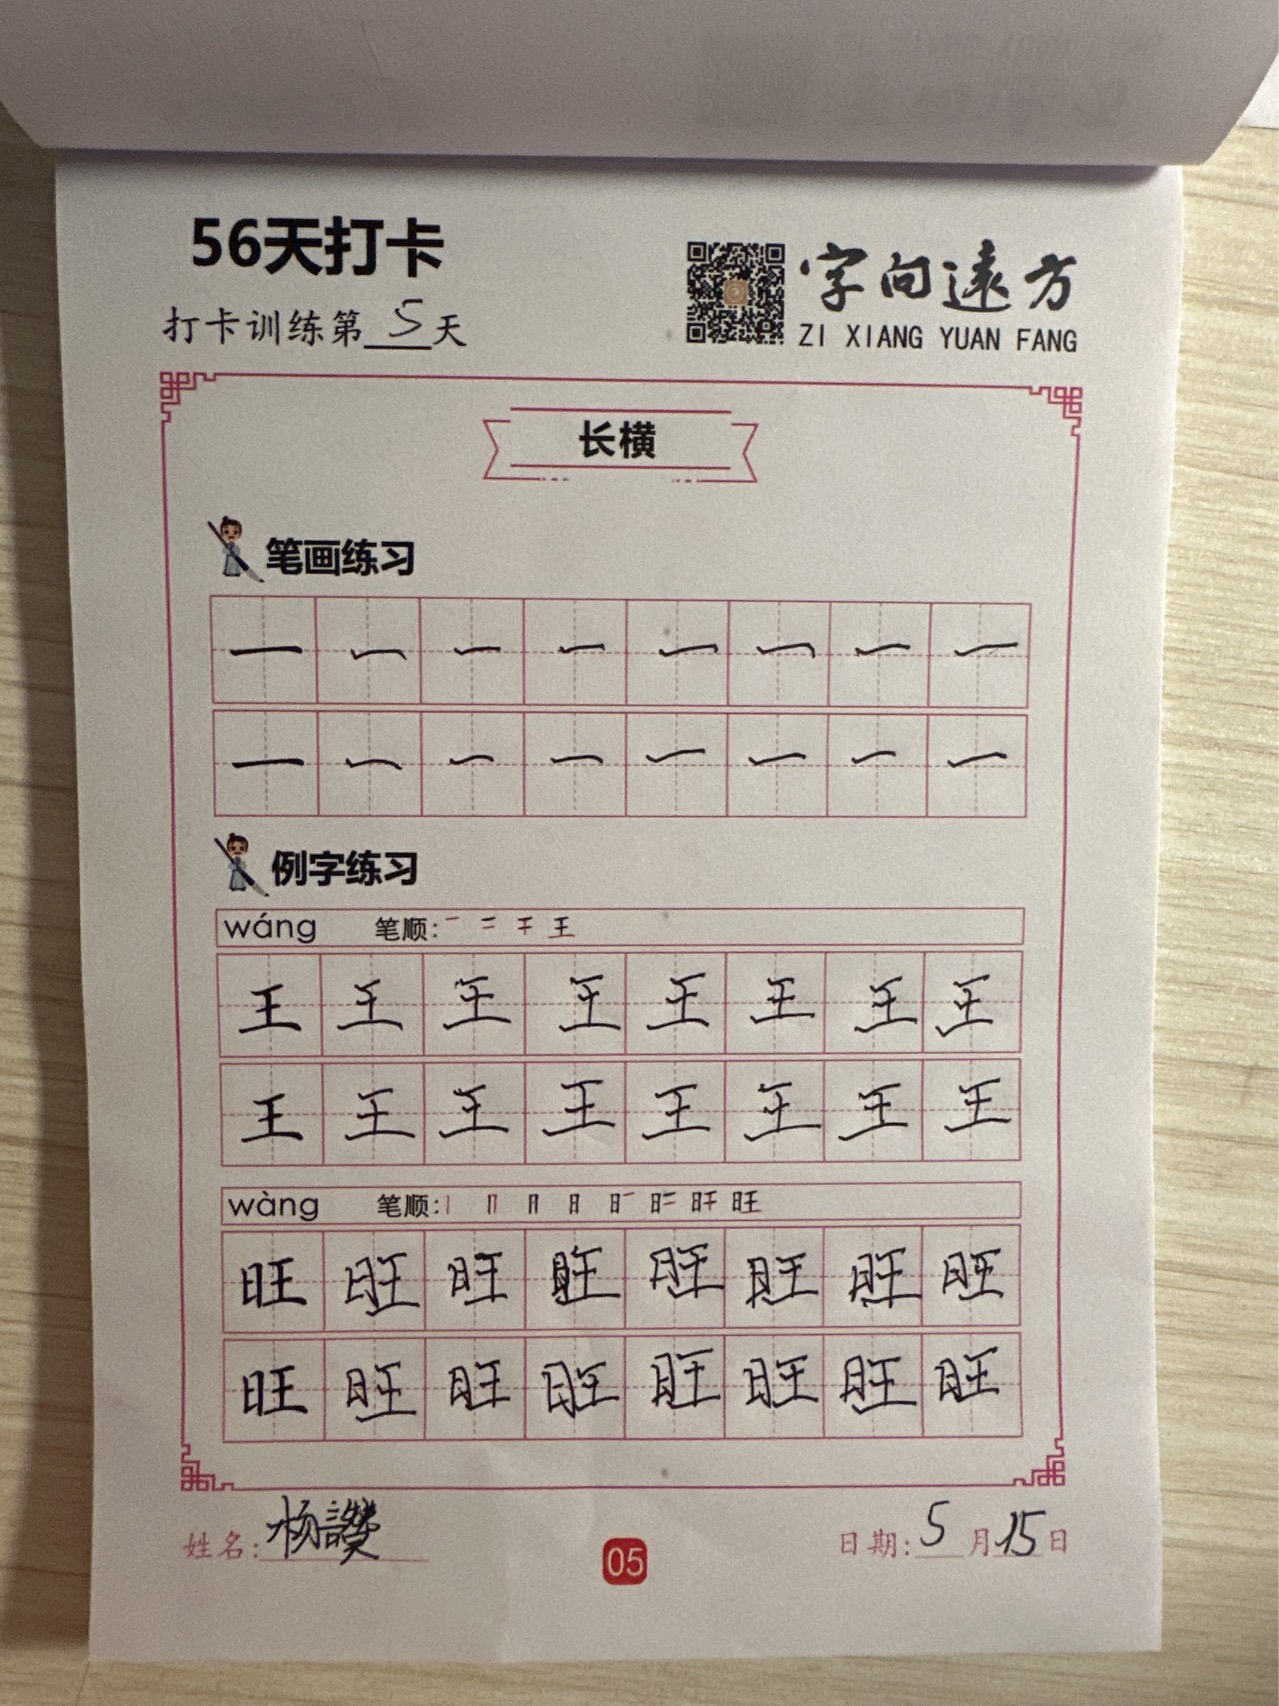 56天打卡
字向遠方
打卡训练第5天
ZI XIANG YUAN FANG
长横
笔画练习
一 一 一 一 一 一 一 一
一 一 一 一 一 一 一 一
例字练习
wáng 笔顺: 一 二 干 王
王 王 王 王 王 王 王 王
王 王 王 王 王 王 王 王
wàng 笔顺: 丨 冂 月 日 旺
旺 旺 旺 旺 旺 旺 旺 旺
旺 旺 旺 旺 旺 旺 旺 旺
姓名: 杨讚
05
日期: 5月15日